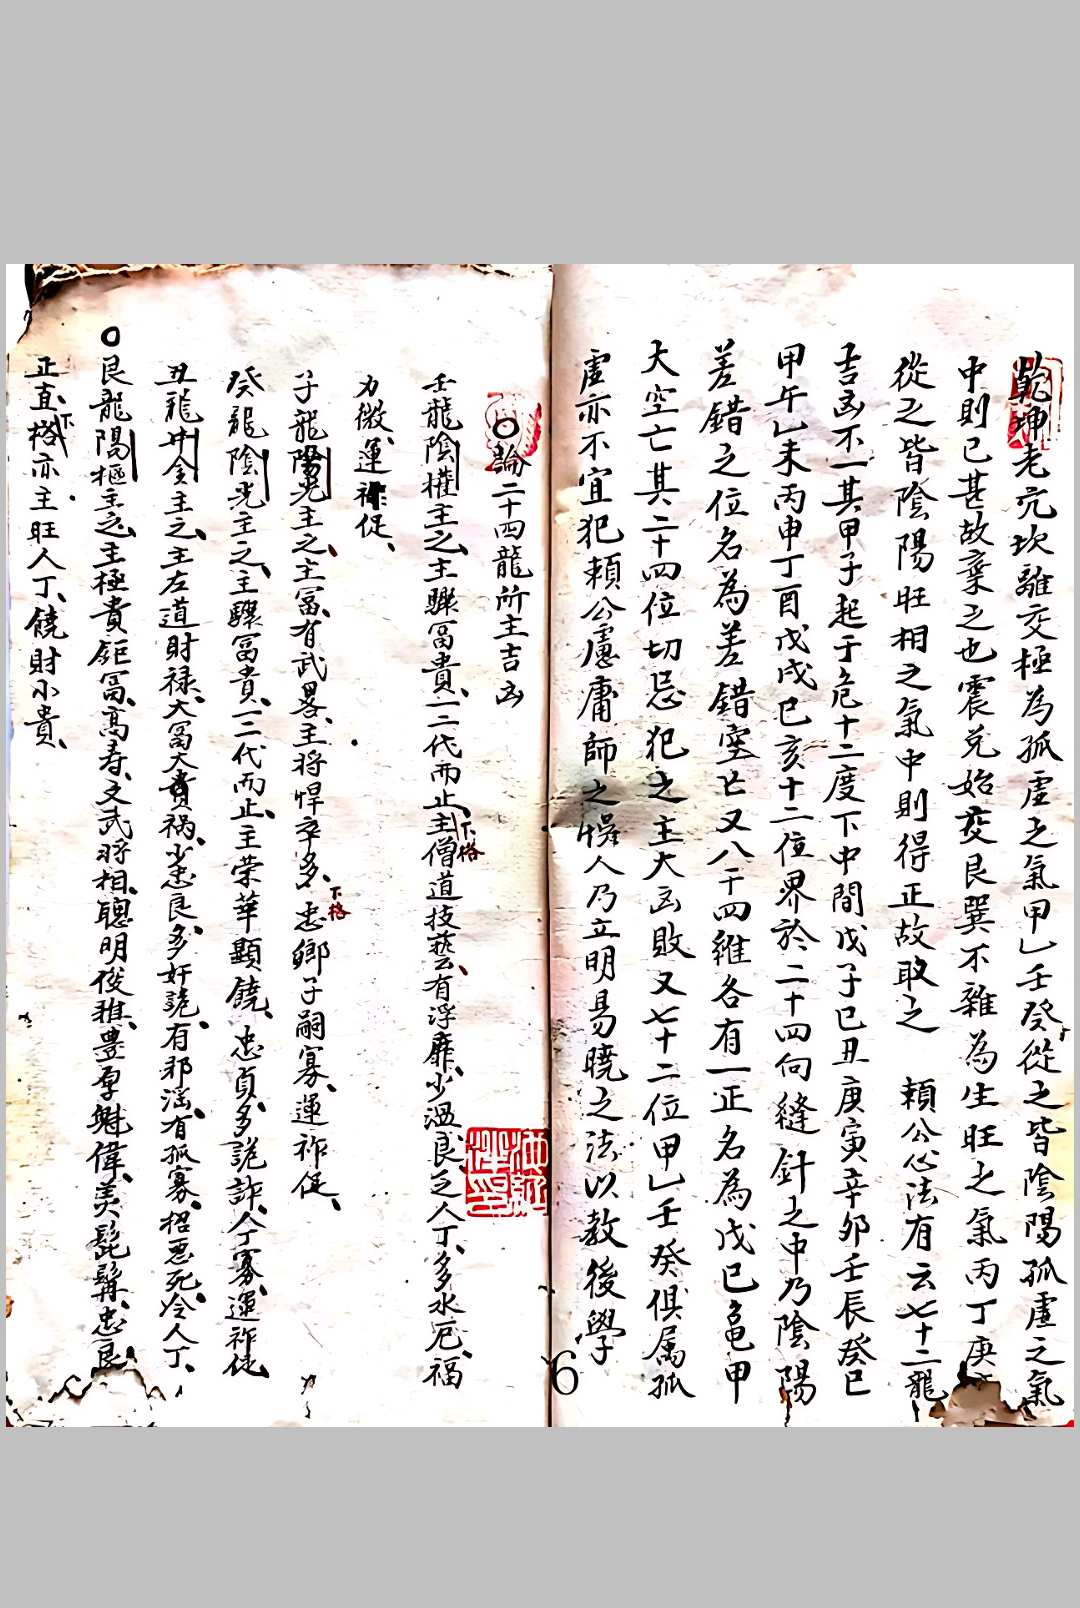 乾坤老亢坎離交極為孤虛之氣甲乙壬癸從之皆陰陽孤虛之氣
中則已甚故棄之也震兌始交艮巽不雜為生旺之氣丙丁庚
從之皆陰陽旺相之氣中則得正故取之 頼公心法有云七十二龍
吉凶不一其甲子起于危十二度下中間戊子已丑庚寅辛卯壬辰癸巳
甲午乙未丙申丁酉戊戌巳亥十二位界於二十四向縫針之中乃陰陽
差錯之位名為差錯空亡又八干四維各有一正名為戊已龜甲
大空亡其二十四位切忌犯之主大凶敗又七十二位甲乙壬癸俱属孤
虛亦不宜犯頼公慮庸師之悞人乃立明易曉之法以教後學
〇論二十四龍所主吉凶
壬龍陰權主之、主驟冨貴、一二代而止、主僧道技藝、有浮靡、少温良、乏人丁、多水厄、福
下格
力微、運祚促、
子龍陽光主之、主冨、有武畧、主将悍卒多、忠鄉子嗣寡、運祚促、
下格
癸龍陰光主之、主驟冨貴、一二代而止、主荣華顯饒、忠貞、多詭詐、人丁寡、運祚促
丑龍牛金主之、主左道財禄、大冨大貴禍、少忠良、多奸詭、有邪淫、有孤寡、招惡死、冷人丁、
〇艮龍陽樞主之、主極貴鉅冨、高寿、文武将相、聰明俊雅、豊厚魁偉、美髭髯、忠良
正直、格亦主旺人丁、饒財小貴、
下
6